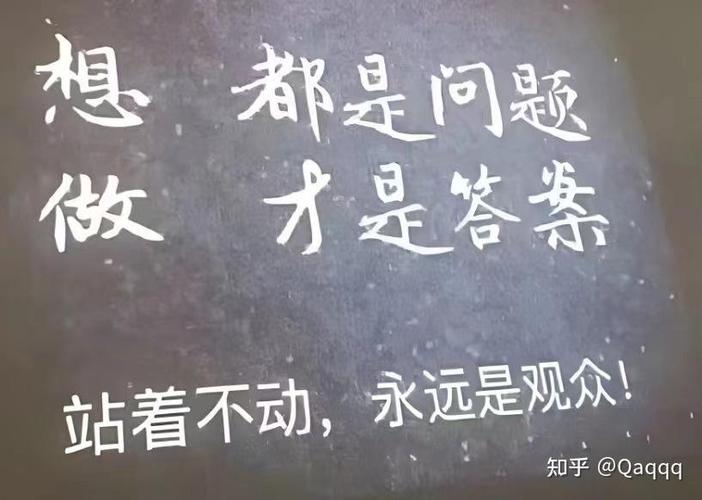 想 都是问题
做 才是答案
站着不动，永远是观众！
知乎 @Qaqqq